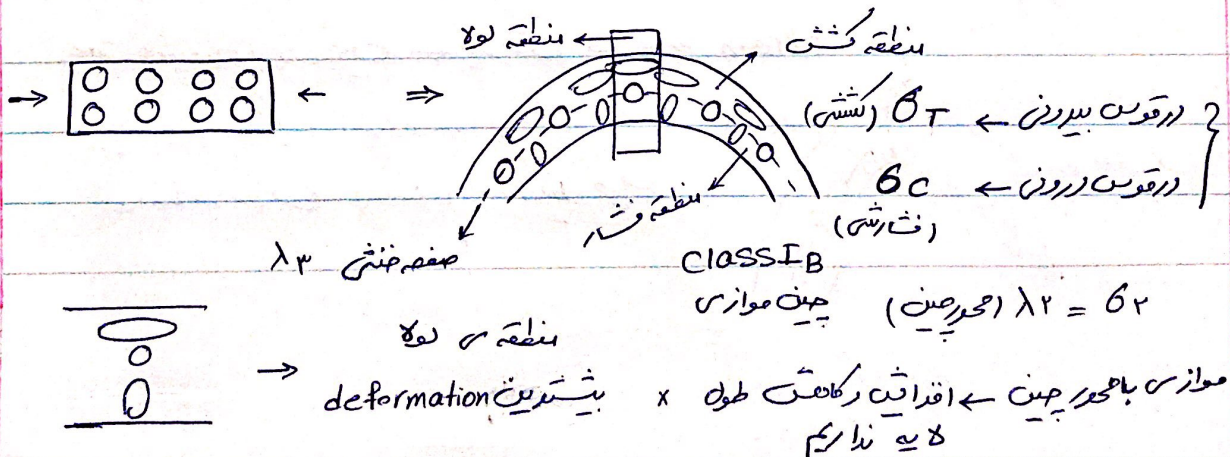 منطقه لولا ←
منطقه کشش
در قوس بیرونی ← σT (کششی)
در قوس درونی ← σC (فشارشی)
منطقه فشار
صفحه خنثی λ۳
Class IB
چین موازی
λ۲ = σ۲ (محور چین)
منطقه ی لولا
بیشترین deformation
موازی با محور چین ← افزایش و کاهش طول ×
لایه نداریم